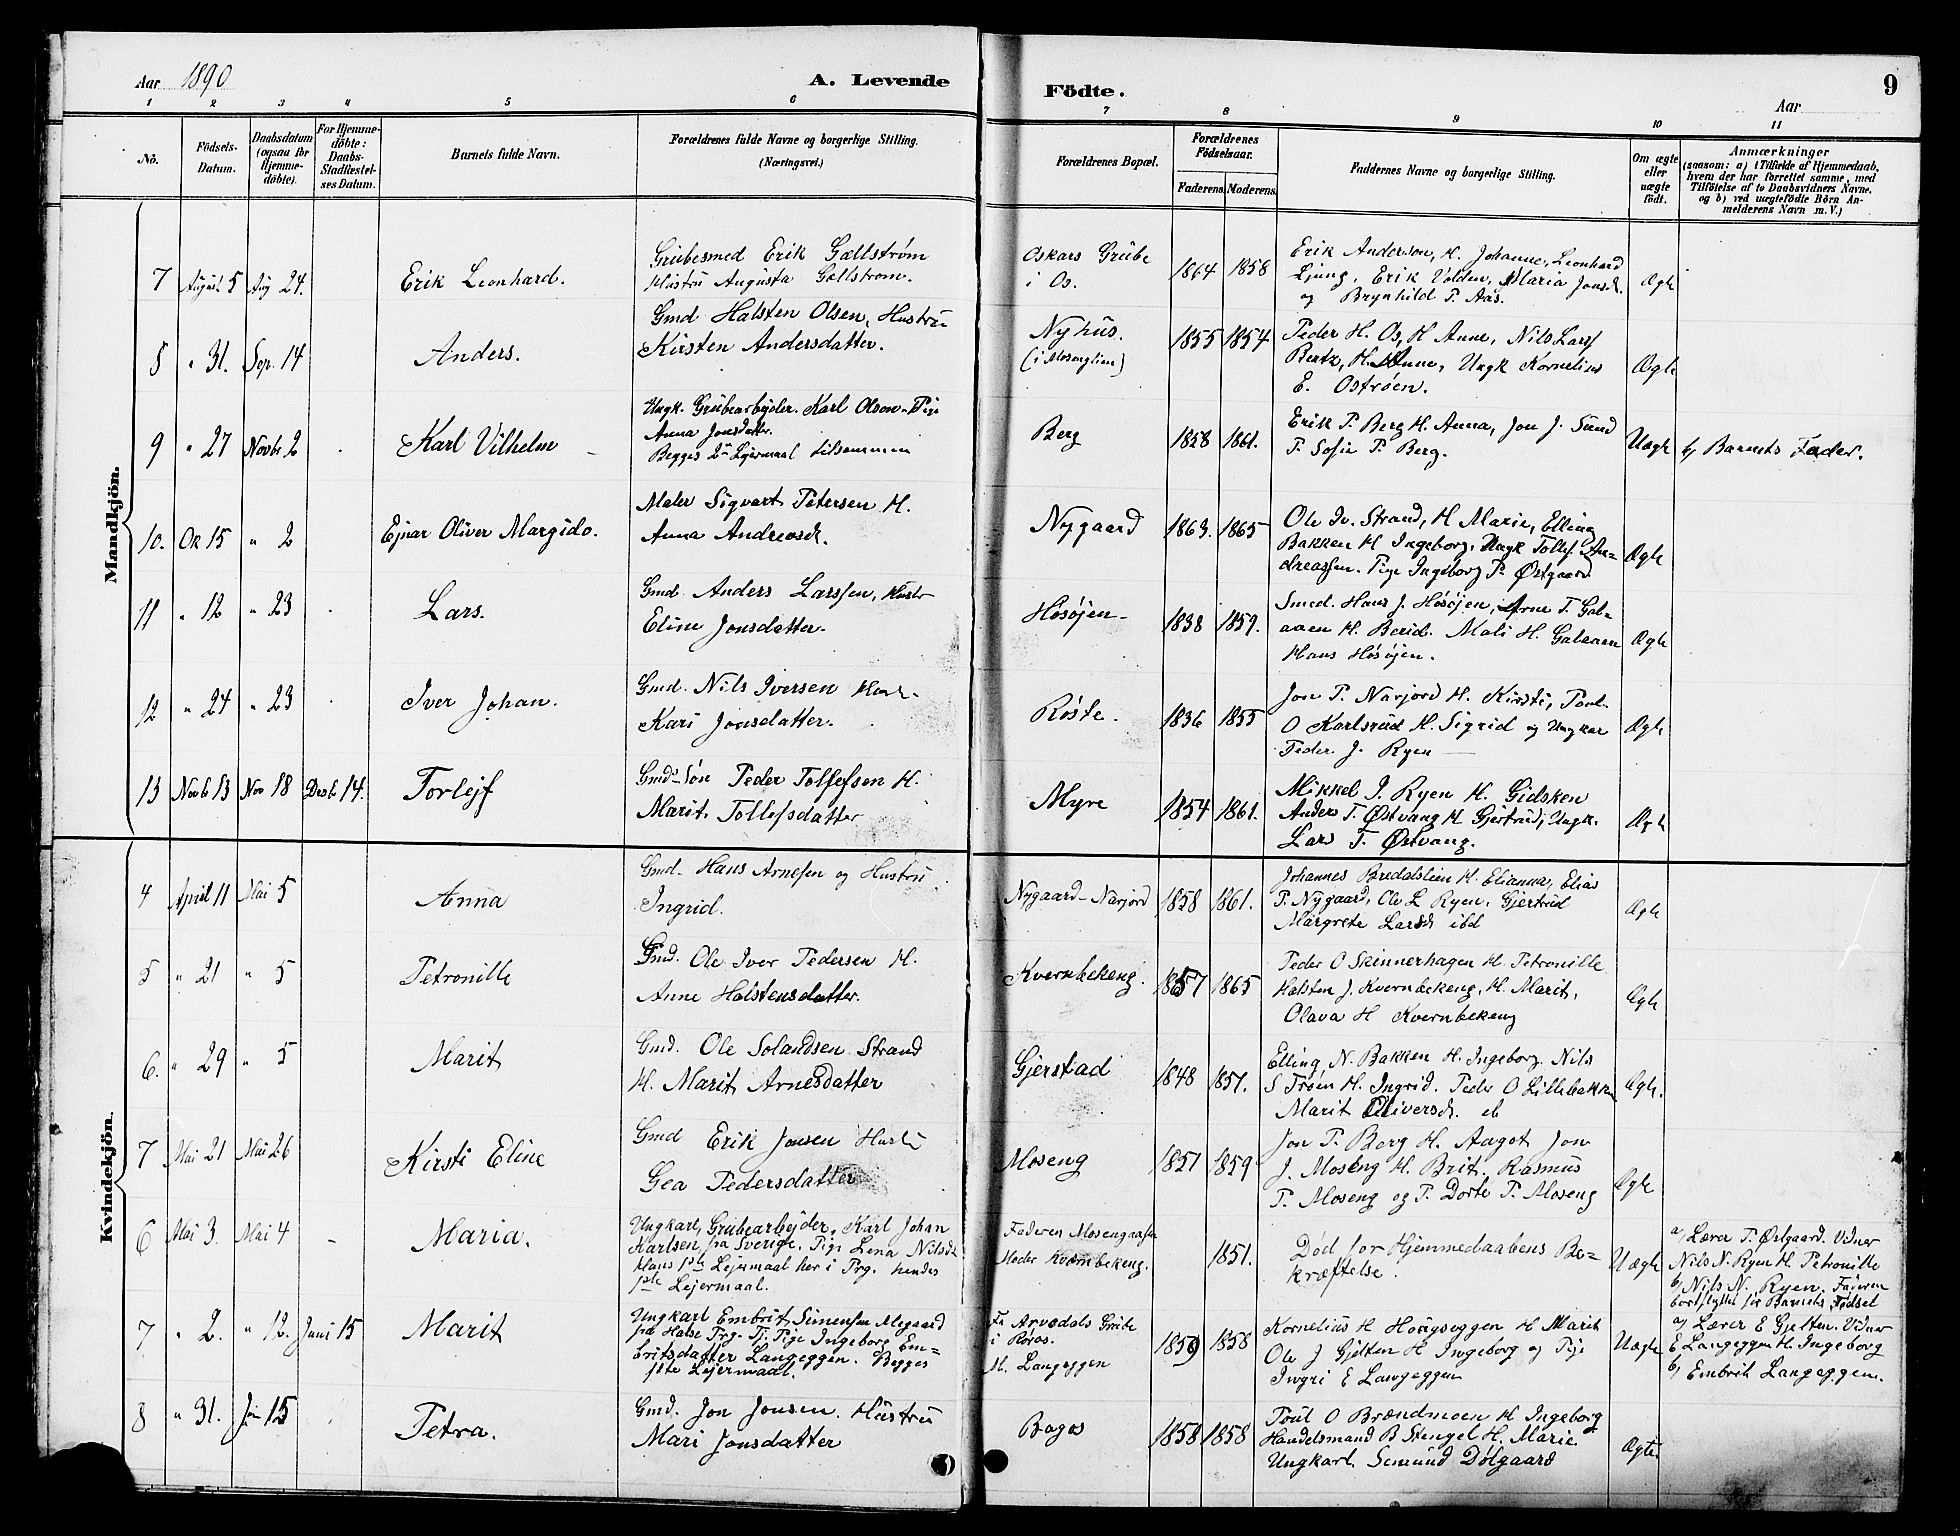 Aar 1890
A. Levende
Födte.
9
Aar
1 2 3 4 5 6 7 8 9 10 11
No.
Födsels-
Datum.
Daabsdatum
(ogsaa for
Hjemme-
döbte).
For Hjemme-
döbte:
Daabs-
Stadfæstel-
ses Datum.
Barnets fulde Navn.
Forældrenes fulde Navne og borgerlige Stilling.
(Næringsvei.)
Forældrenes Bopæl.
Forældrenes
Födselsaar.
Faderens. Moderens.
Faddernes Navne og borgerlige Stilling.
Om ægte
eller
uægte
født.
Anmærkninger
(saasom: a) i Tilfælde af Hjemmedaab,
hvem der har forrettet samme, med
Tilföielse af to Daabsvidners Navne,
og b) ved uægtefödte Börn An-
melderens Navn m. V.)
Mandkjön.
7 August 5 Aug 24. Erik Leonhard.
Grubesmed Erik Gællstrøm
Hustru Augusta Gællstrom.
Oskars Grube
i Os.
1864 1858
Erik Anderson, H. Johanne, Leonhard
Ljung, Erik Volden, Maria Jonsd.
og Brynhild P. Aas.
Ægte
8 " 31. Sep. 14 Anders.
Gmd Halsten Olsen, Hustru
Kirsten Andersdatter.
Nyhus.
(i Mosenglien)
1855 1854
Peder H. Os, H Anne, Nils Larss
Bertz, H. Anne, Ungk Kornelius
E. Ostrøen.
Ægte
9 " 27 Novbr 2 Karl Vilhelm
Ungk. Grubearbejder. Karl Olson. Pige
Anna Jonsdatter.
Begges 2n Lejermaal tilsammen
Berg
1858 1861.
Erik P. Berg H. Anna, Jon J. Sund
P. Sofie P. Berg.
Uægte b, Barnets Fader.
10. Ok 15 " 2 Ejnar Oliver Margido.
Maler Sigvart Petersen H.
Anna Andreasd.
Nygaard
1863. 1865
Ole Iv. Strand, H Marie, Elling
Bakken H Ingeborg, Ungk Tollef An-
dreassen. Pige Ingeborg P. Østgaard
Ægte
11 " 12 " 23 Lars.
Gmd. Anders Larssen, Hustr
Eline Jonsdatter.
Høsøjen
1838 1859.
Smed. Hans J. Høsøjen, Arne T. Gal-
aaen H. Berid. Mali H. Galaaen
Hans Høsøjen.
Ægte
12 " 24 " 23 Iver Johan.
Gmd. Nils Iversen Hust.
Kari Jonsdatter.
Røste.
1836 1855
Jon P. Narjord H. Kirsti, Poul
O Karlsrud H. Sigrid og Ungkar
Peder J. Ryen
Ægte
13 Novbr 13 Nov 18 Desbr 14. Torlejf
Gmds Søn Peder Tollefsen H.
Marit Tollefsdatter
Myre
1854 1861.
Mikkel J. Ryen H. Gidsken
Anders T. Østvang H Gjertrud, Ungk.
Lars T. Østvang.
Ægte
Kvindekjön.
4 April 11 Mai 5 Anna
Gmd. Hans Arnesen og Hustru
Ingrid.
Nygaard-Narjord
1858 1861.
Johannes Bredalslien H. Elianna, Elias
P. Nygaard, Ole L Ryen, Gjertrud
Margrete Larsd ibd
Ægte
5 " 21 " 5 Petronille
Gmd. Ole Iver Pedersen H.
Anne Halstensdatter.
Kvernbekeng.
1857 1865
Peder O Skinnerhagen H. Petronille
Halsten J. Kvernbekeng, H. Marit,
Olava H Kvernbekeng
Ægte
6. " 29 " 5 Marit
Gmd. Ole Solandsen Strand
H. Marit Arnesdatter
Gjerstad
1848 1851.
Elling N. Bakken H. Ingeborg. Nils
S Trøen H. Ingrid. Peder O Lillebakken
Marit Oliversd. ib
Ægte.
7 Mai 21 Mai 26 Kirsti Eline
Gmd Erik Jonsen Hustru
Gea Pedersdatter
Moseng
1851 1859
Jon P. Berg H. Aagot Jon
J. Moseng H. Brit. Rasmus
P. Moseng og P. Dorte P. Moseng
Ægte
6 Mai 3. Mai 4 Maria.
Ungkarl, Grubearbejder, Karl Johan
Karlsen fra Sverige. Pige Lena Nilsd.
Hans 1ste Lejermaal her i Prg. hendes
1ste Lejermaal.
Faderen Mosengaasen
Moder Kvernbekeng.
1851.
Død før Hjemmedaabens Be-
kræftelse.
Uægte
a, Lærer T. Østgaard. Vidner
Nils N. Ryen H. Petronille
b, Nils N. Ryen, Faderen
bortflyttet før Barnets Fødsel
7 " 2. " 12. Juni 15 Marit
Ungkarl Embrit Simensen Aлегaard
fra Halse Prg. Tj. Pige Ingeborg Em-
britsdatter Langeggen. Begges
1ste Lejermaal.
Fa Arvedals Grube
i Røros.
M. Langeggen
1859 1858
Kornelius H Hougseggen H Marit
Ole J Gjelten H Ingeborg og Pige
Ingri E Langeggen
Uægte
a, Lærer E Gjelten. Vidner
E Langeggen H. Ingeborg
b, Embrit Langeggen.
8 " 31. Jun 15 Petra.
Gmd. Jon Jonsen. Hustru
Mari Jonsdatter
Bagos
1858 1858
Poul O Brændmoen H Ingeborg
Handelsmand B Stengel H. Marie.
Ungkarl. Semund Dølgaard
Ægte.